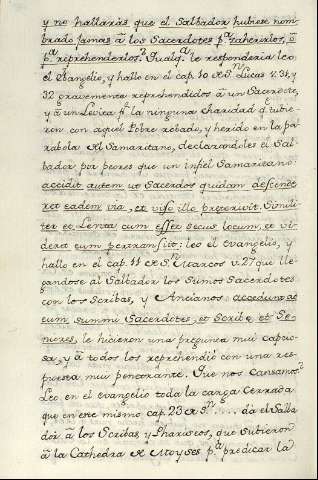 y no hallarás que el Salbador hubiese nom-
brado jamas â los Sacerdotes pª zaherirlos, û
pª reprehenderlos? Qualqª le responderia leo
el Evangelio, y hallo en el cap. 10 de Sn Lucas v. 31, y
32 gravemente reprehendidos â un Sacerdote,
y â un Levita pr la ninguna charidad q. tubie-
ron con aquel Pobre robado, y herido en la pa-
rabola del Samaritano, declarandoles el Sal-
bador por peores que un infiel Samaritano:
accidit autem ut Sacerdos quidam descende-
ret eadem via, et viso illo preterivit. Simili-
ter et Levita cum esset secus locum, et vi-
deret eum pertransiit: leo el evangelio, y
hallo en el cap. 11 de Sn Marcos v. 27 que lle-
gandose al Salbador los Sumos Sacerdotes
con los Scribas, y Ancianos accedunt ad
eum summi Sacerdotes, et Scribe, et Se-
niores, le hicieron una pregunta mui capcio-
sa, y â todos los reprehendió con una res-
puesta muy penetrante. Que nos cansamos?
Leo en el evangelio toda la carga cerrada
que en este mismo cap. 23 de Sn ..... da el Salba-
dor â los Scribas y Phariseos, que subieron
â la Cathedra de Moyses pª predicar la